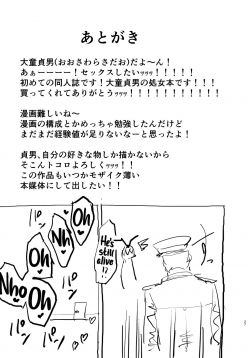 あとがき
大童貞男(おおさわらさだお)だよ～ん!
あぁーーーー!セックスしたいッッッ!!!!!
初めての同人誌です!大童貞男の処女本です!!!!
買ってくれてありがとうッッッ!!!!!!
漫画難しいね～
漫画の構成とかめっちゃ勉強したんだけど
まだまだ経験値が足りないなーと思ったよ!
貞男、自分の好きな物しか描かないから
そこんトコロよろしくッッ!!
この作品もいつかモザイク薄い
本媒体にして出したい!!
He's
still
alive
!?
Oh
No
Oh
Oh
Nho
パン
パン
パン